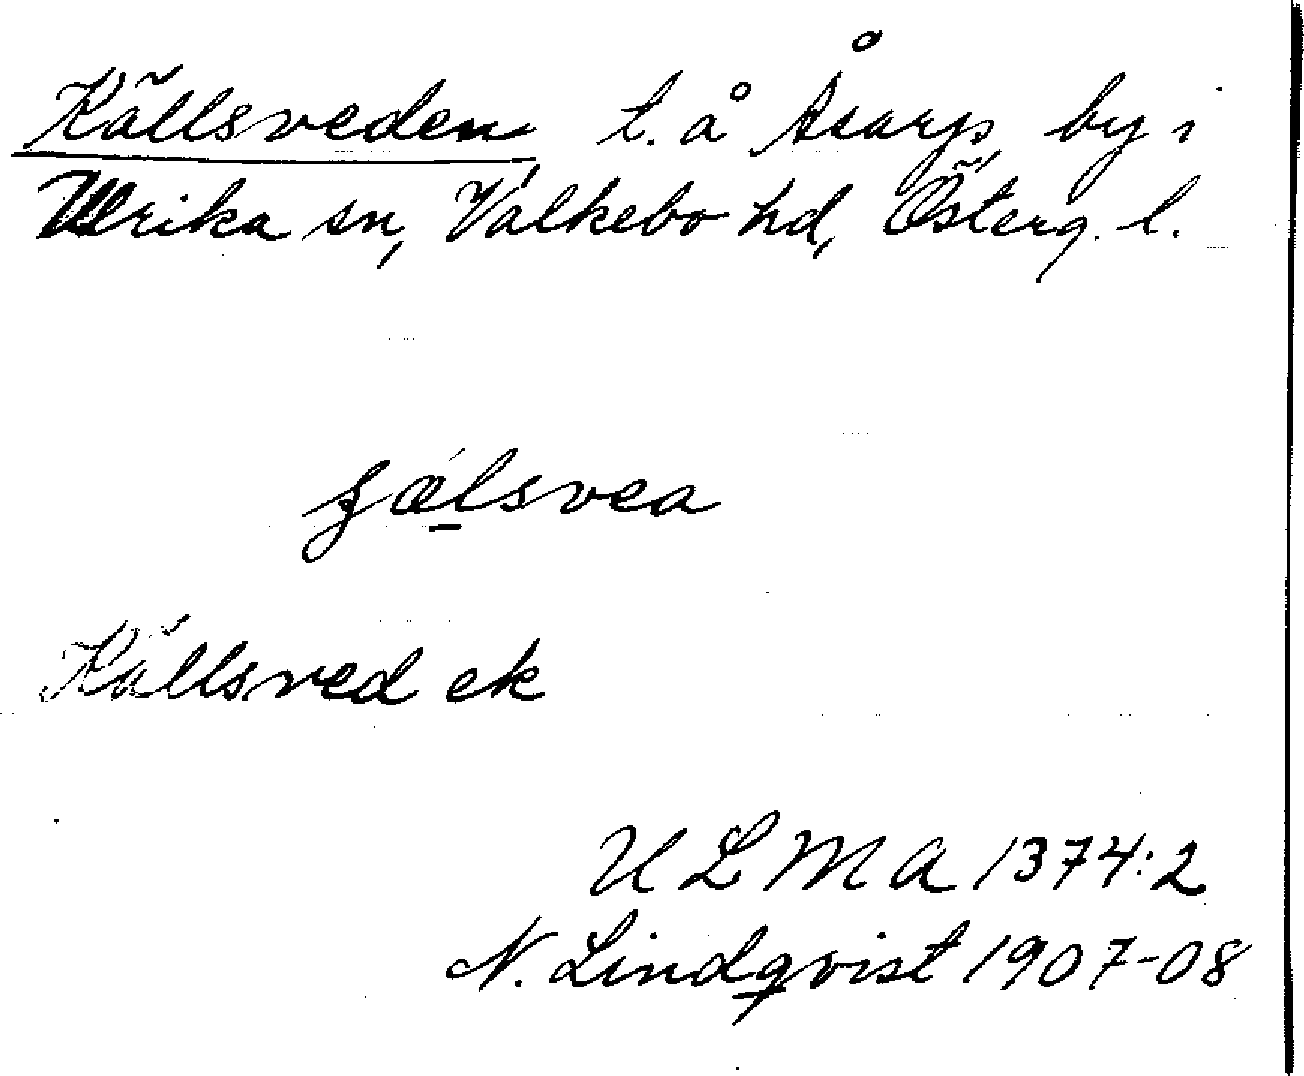 Källsveden, t. å Åsarps by i
Ulrika sn, Valkebo hd, Österg. l.
ʝǽlsvea
Källsved ek
ULMA 1374:2
N. Lindqvist 1907-08